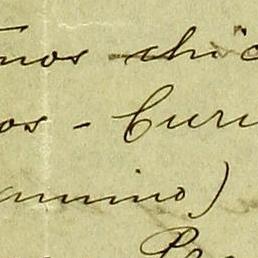 nos chic
os - Curu
amino)